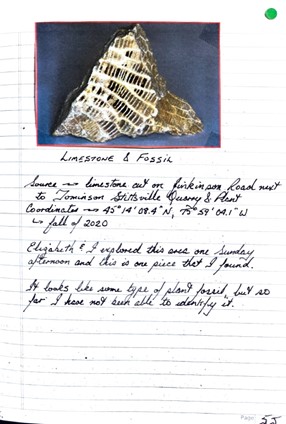 LIMESTONE & FOSSIL
Source → Limestone cut on Jinkinson Road next
to Tomlinson Stittsville Quarry & Plant
Coordinates → 45° 14' 08.5" N, 75° 59' 09.1" W
↳ fall of 2020
Elizabeth & I explored this area one Sunday
afternoon and this is one piece that I found.
It looks like some type of plant fossil, but so
far I have not been able to identify it.
Page 55